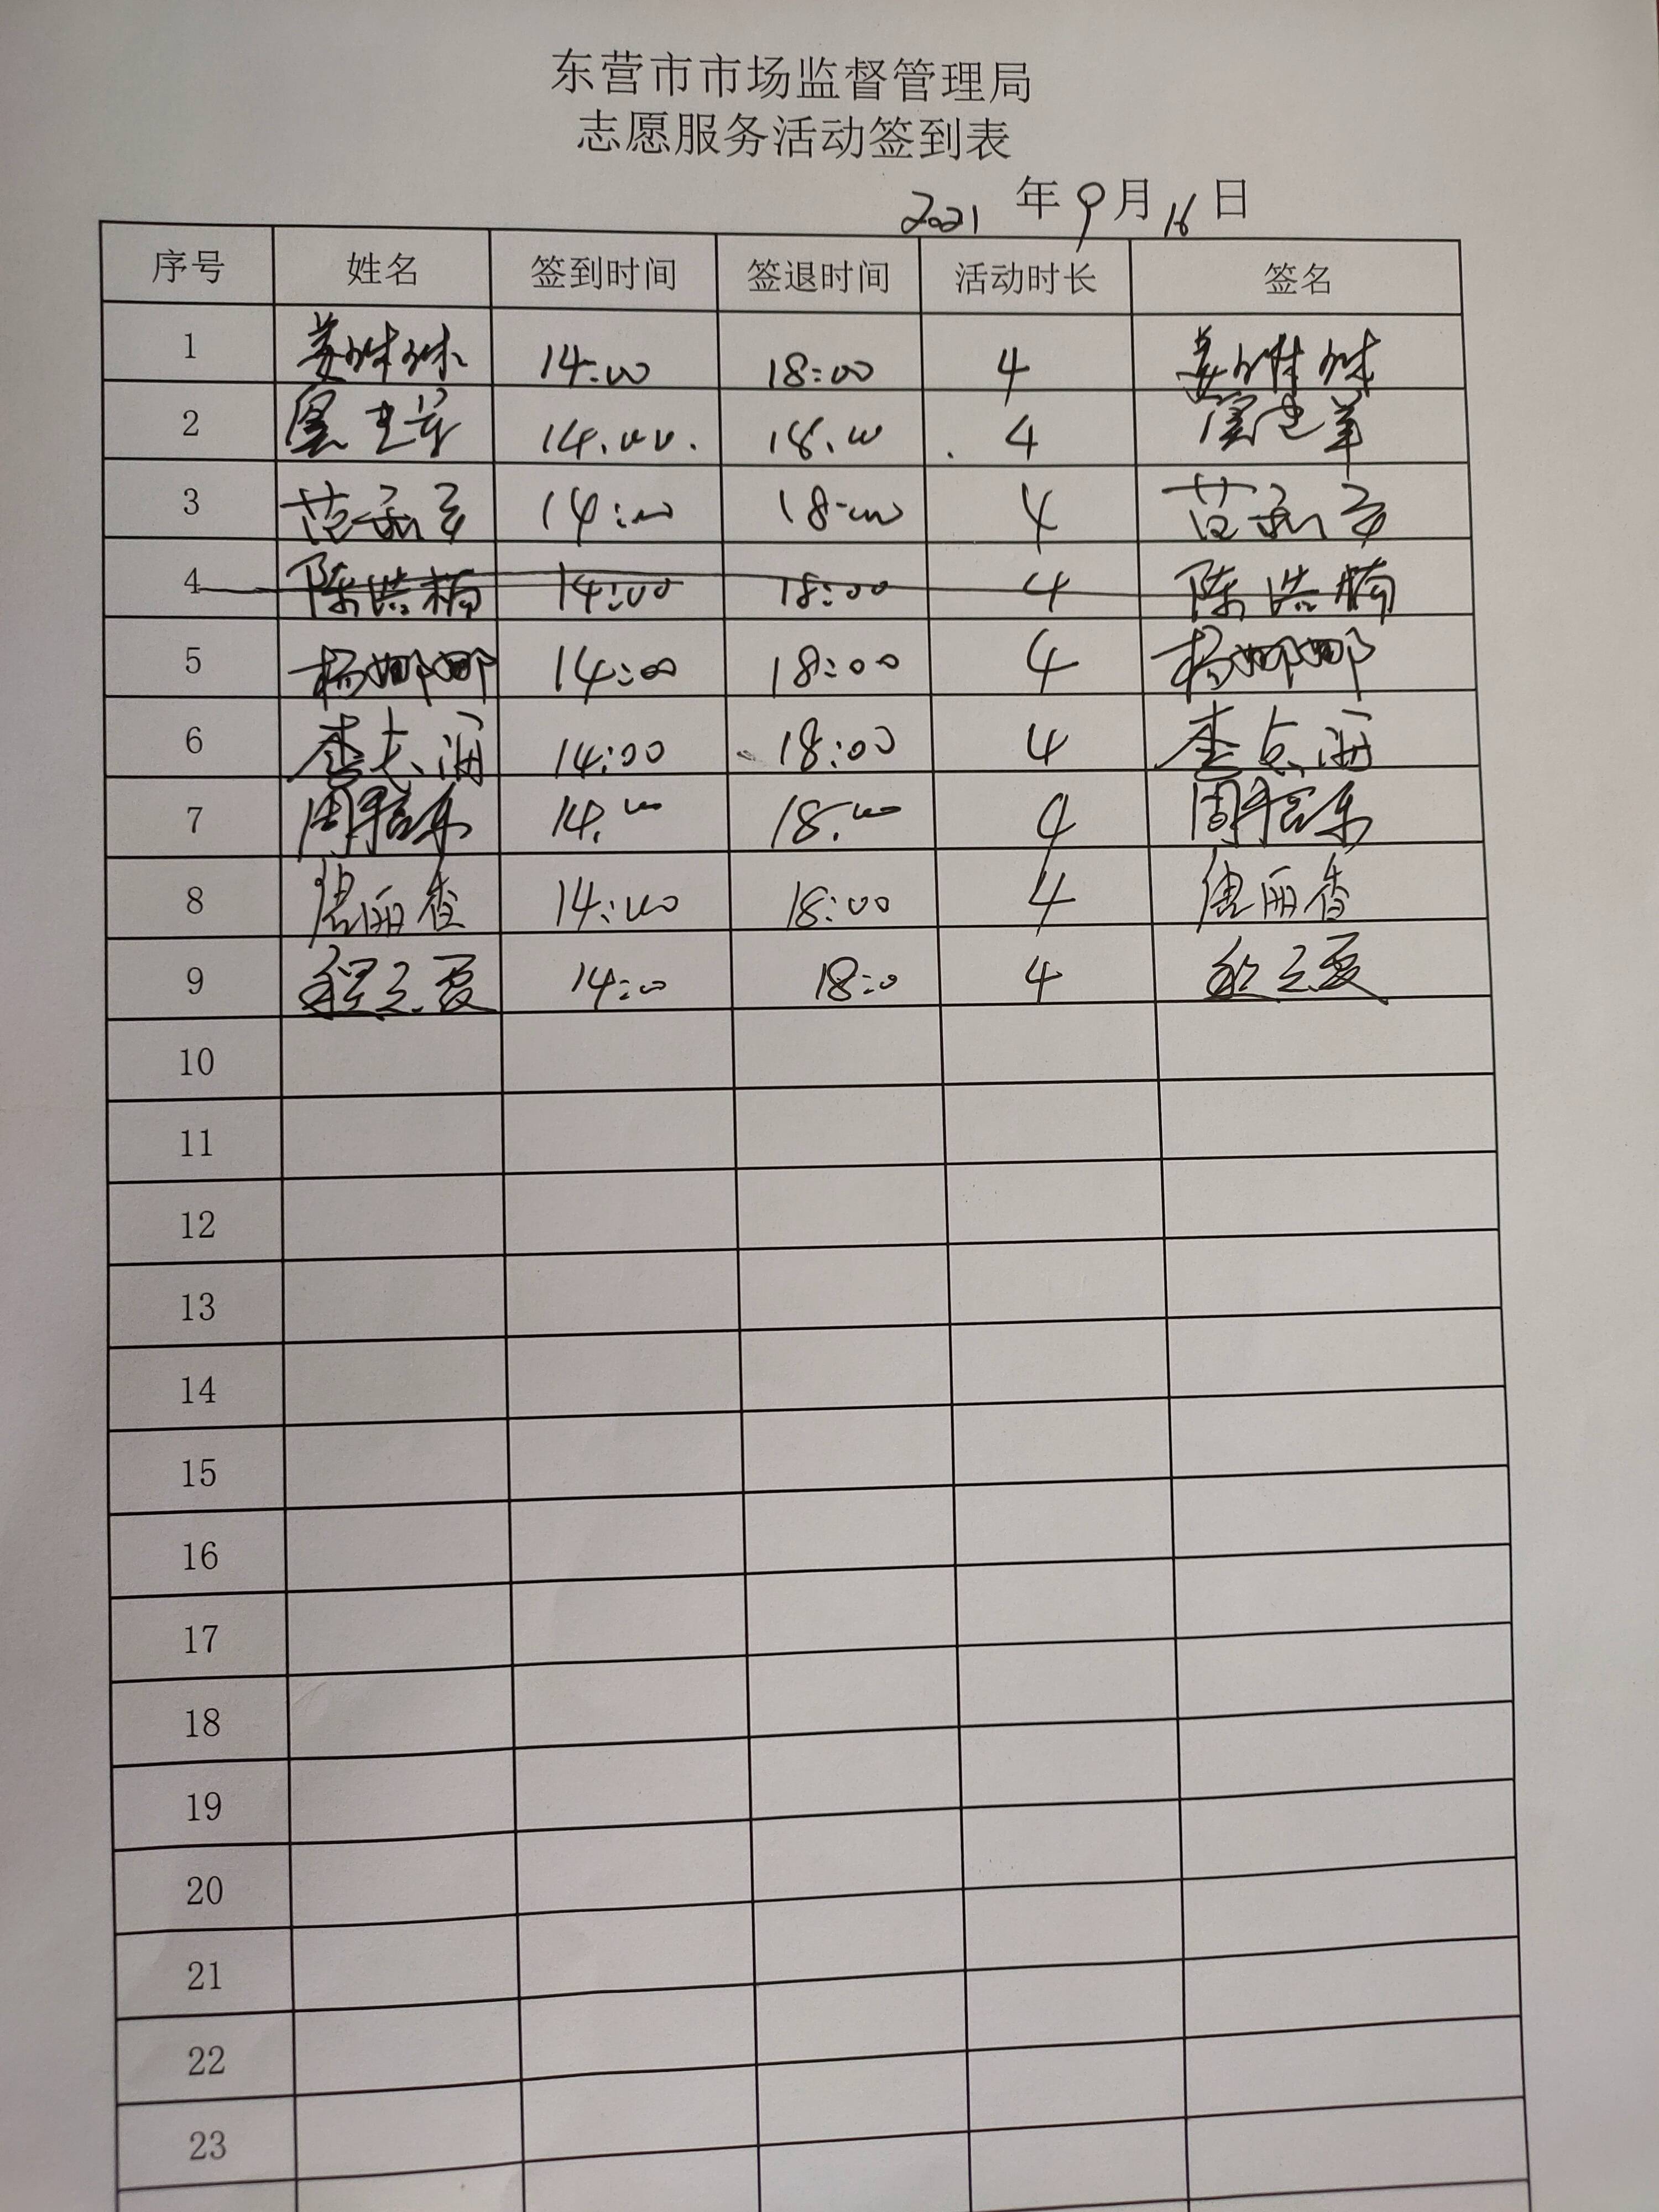 东营市市场监督管理局
志愿服务活动签到表
2021 年 9 月 16 日
序号 姓名 签到时间 签退时间 活动时长 签名
1 姜姝姝 14:00 18:00 4 姜姝姝
2 14.00. 18.00 4
3 14:00 18:00 4
4 陈浩楠 14:00 18:00 4 陈浩楠
5 杨娜娜 14:00 18:00 4 杨娜娜
6 14:00 18:00 4
7 14.00 18.00 4
8 唐丽香 14:00 18:00 4 唐丽香
9 14:00 18:0 4
10
11
12
13
14
15
16
17
18
19
20
21
22
23